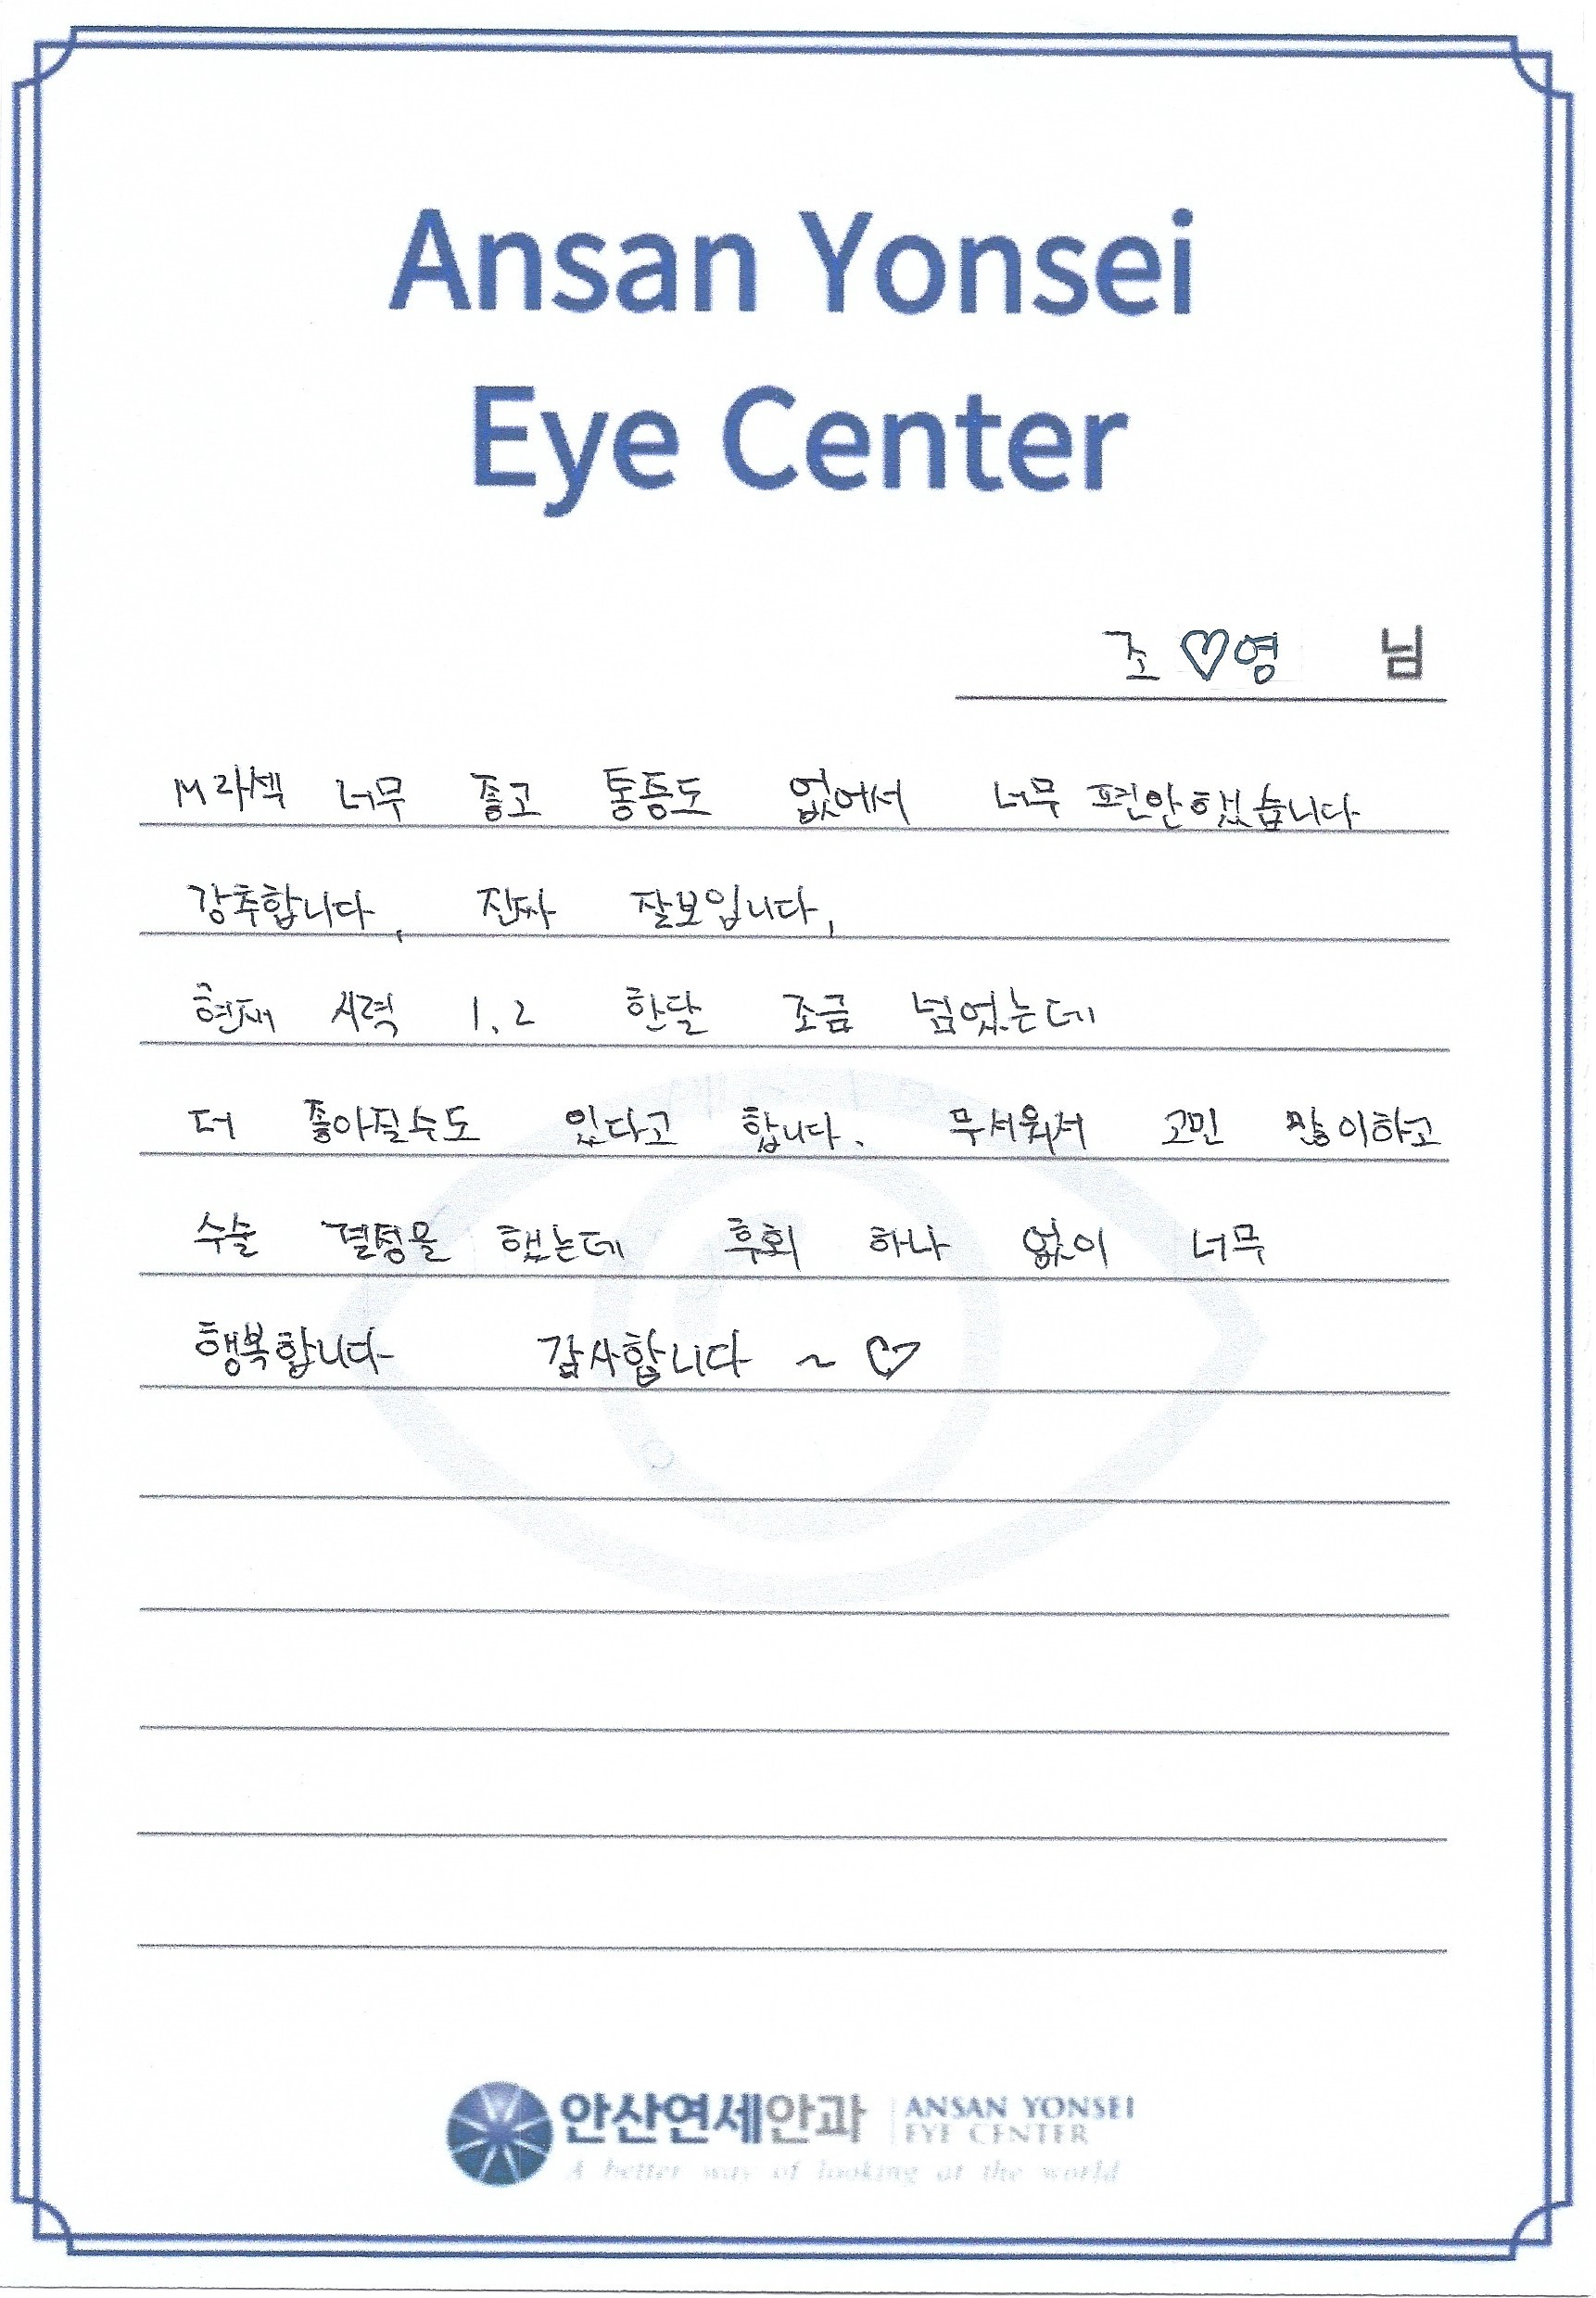 Ansan Yonsei
Eye Center
조♡영 님
M라섹 너무 좋고 통증도 없어서 너무 편안했습니다
강추합니다, 진짜 잘보입니다,
현재 시력 1.2 한달 조금 넘었는데
더 좋아질수도 있다고 합니다. 무서워서 고민 많이하고
수술 결정을 했는데 후회 하나 없이 너무
행복합니다 감사합니다 ~ ♡
안산연세안과 ANSAN YONSEI
EYE CENTER
A better way of looking at the world